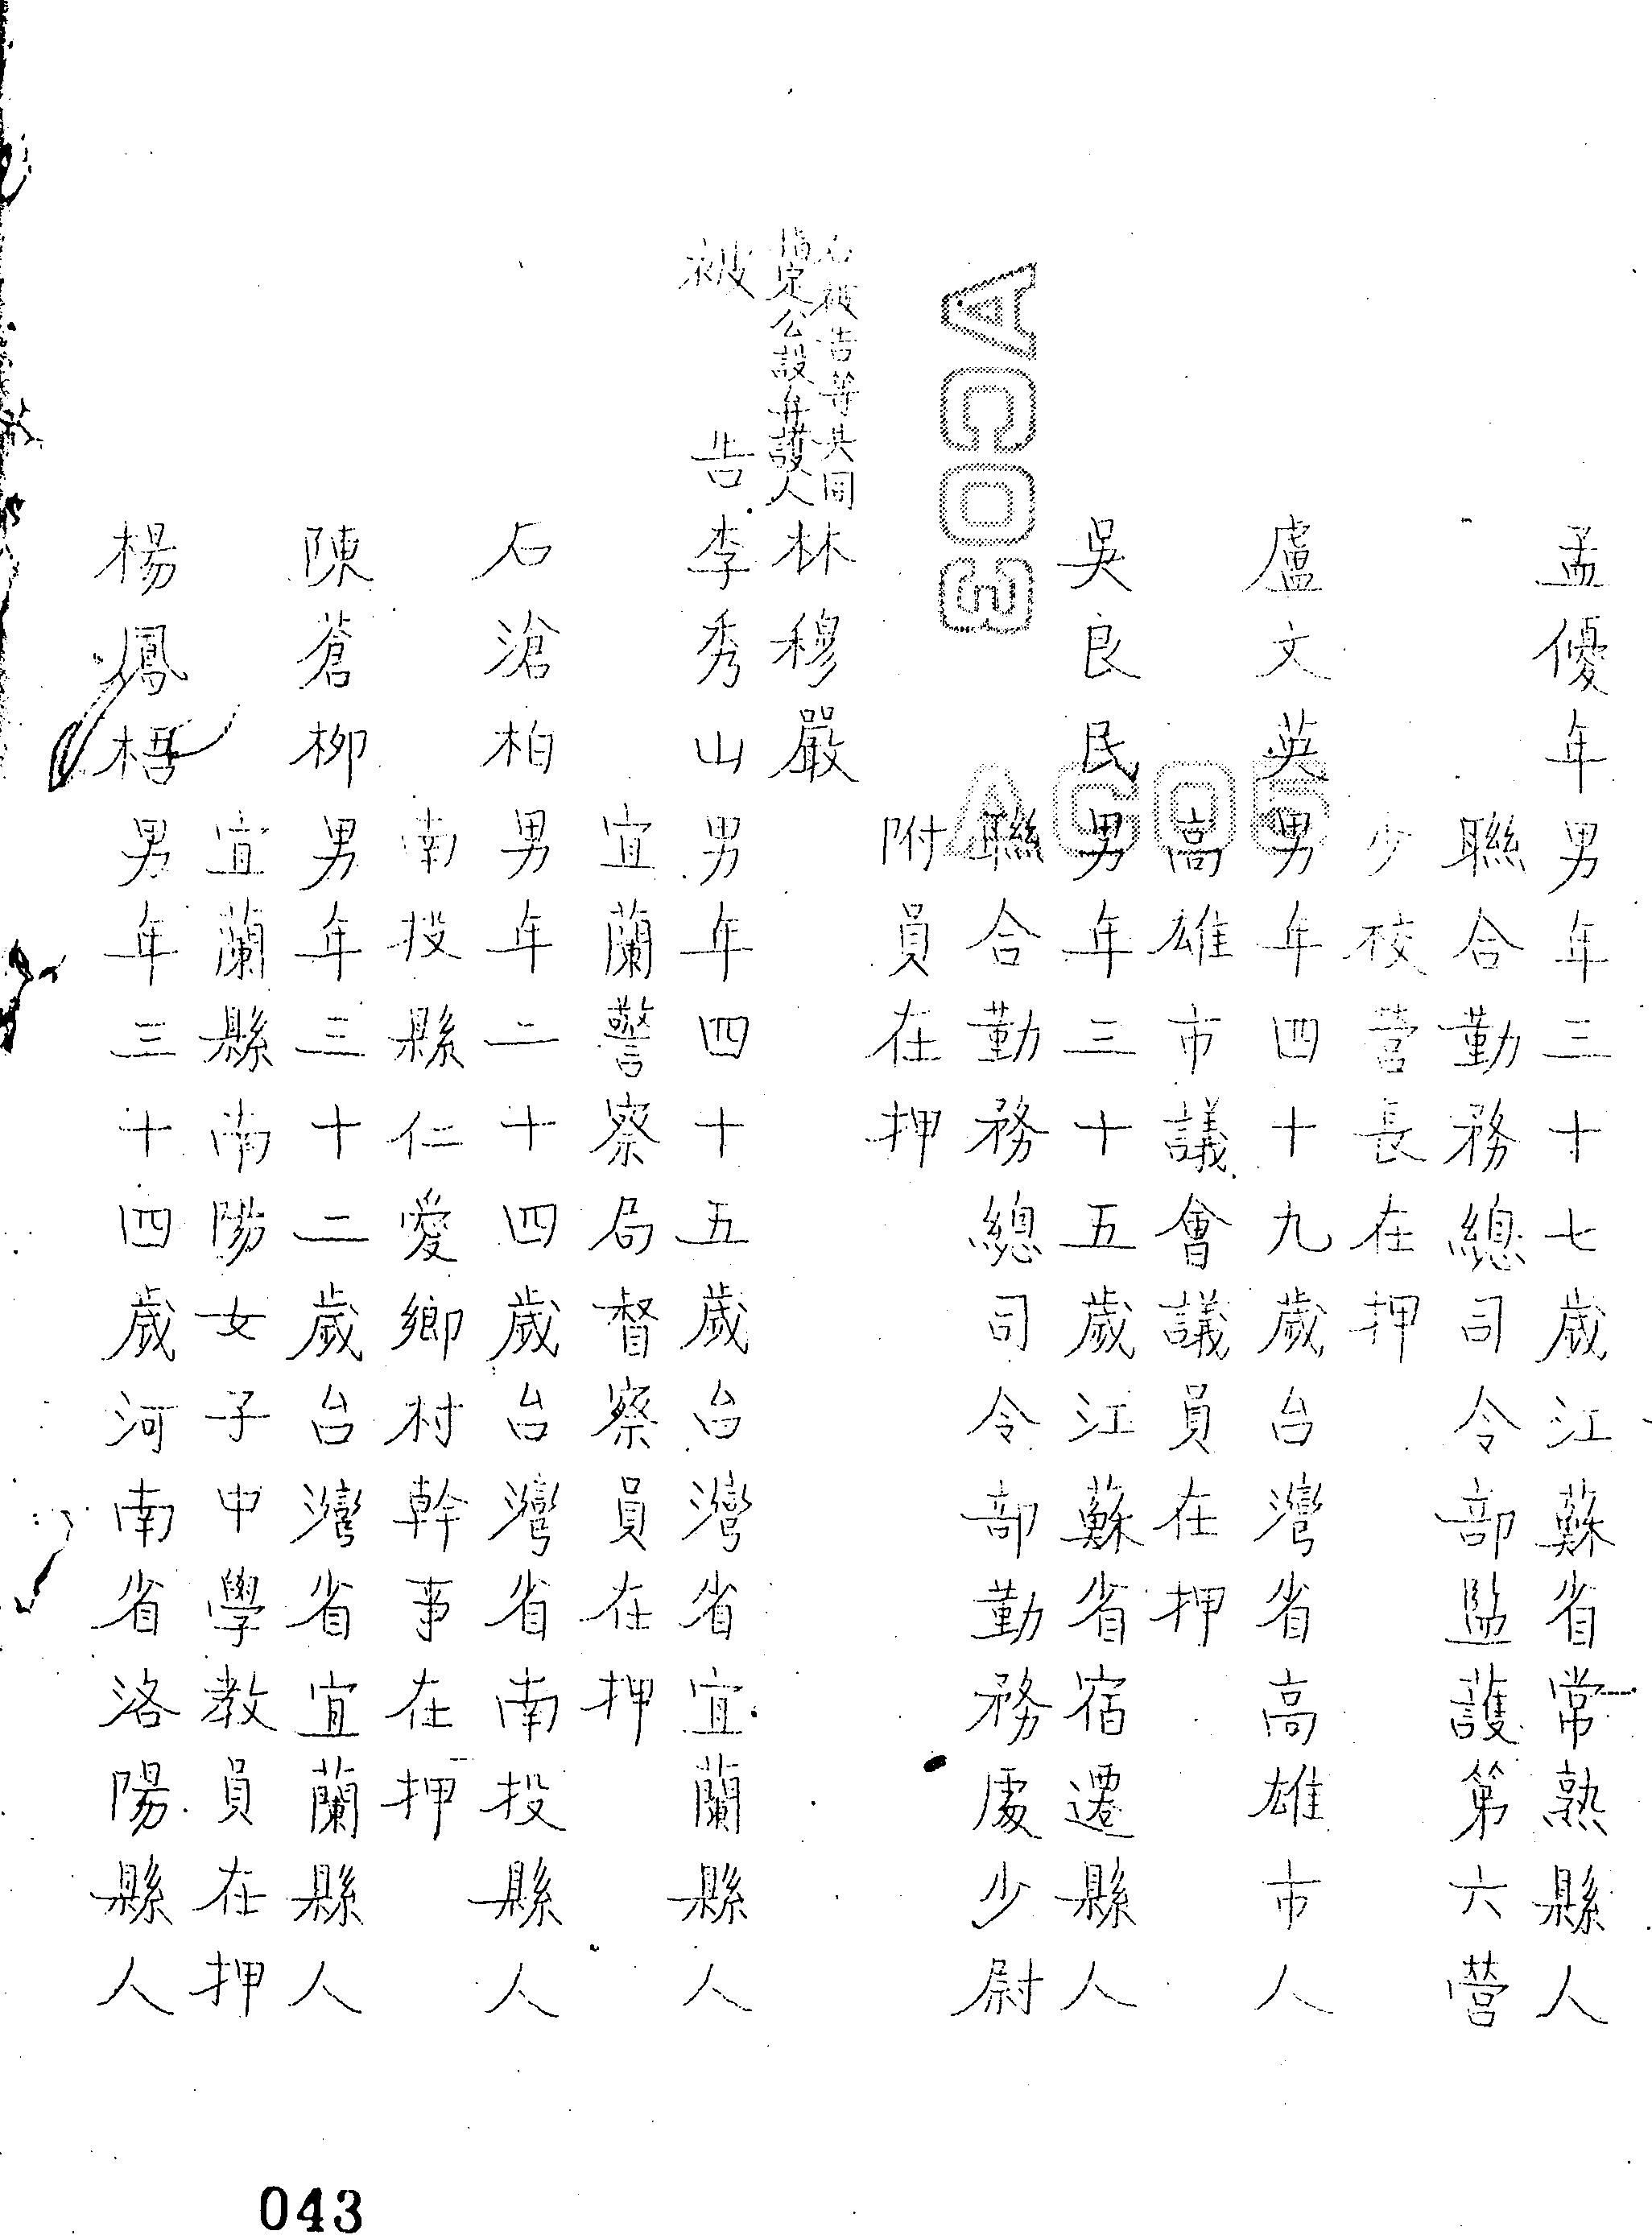 孟優年男年三十七歲江蘇省常熟縣人
聯合勤務總司令部監護第六營
少校營長在押
盧文英男年四十九歲台灣省高雄市人
高雄市議會議員在押
吳良民男年三十五歲江蘇省宿遷縣人
聯合勤務總司令部勤務處少尉
附員在押
被告等共同
指定公設辯護人林穆嚴
被告李秀山男年四十五歲台灣省宜蘭縣人
宜蘭警察局督察員在押
石滄柏男年二十四歲台灣省南投縣人
南投縣仁愛鄉村幹事在押
陳蒼柳男年三十二歲台灣省宜蘭縣人
宜蘭縣南陽女子中學教員在押
楊鳳梧男年三十四歲河南省洛陽縣人
AC03
AC05
043